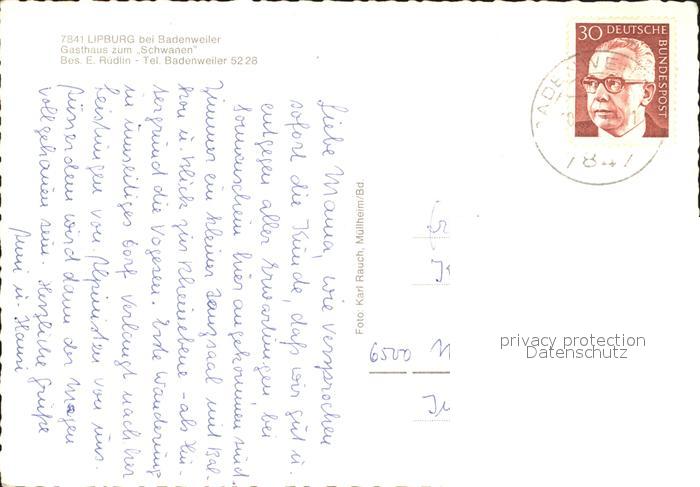 7841 LIPBURG bei Badenweiler
Gasthaus zum „Schwanen"
Bes. E. Rüdlin - Tel. Badenweiler 52 28
30 DEUTSCHE
BUNDESPOST
BADENWE
7847
Liebe Mama, wie versprochen
sofort die Kunde, daß wir gut u.
entgegen aller Erwartungen, bei
Sonnenschein hier angekommen sind.
Zimmer ein kleiner Tanzsaal mit Bal-
kon u. Blick zur Rheinebene - als Hin-
tergrund die Vogesen. Erste Wanderung
in unseliges Dorf verlangt nachher
Leistungen von Alpinisten von uns.
Ausserdem wird dann der Magen
vollgehauen sein. Herzliche Grüße
u. Hanni
Foto: Karl Rauch, Müllheim/Bd.
6500 M
privacy protection
Datenschutz